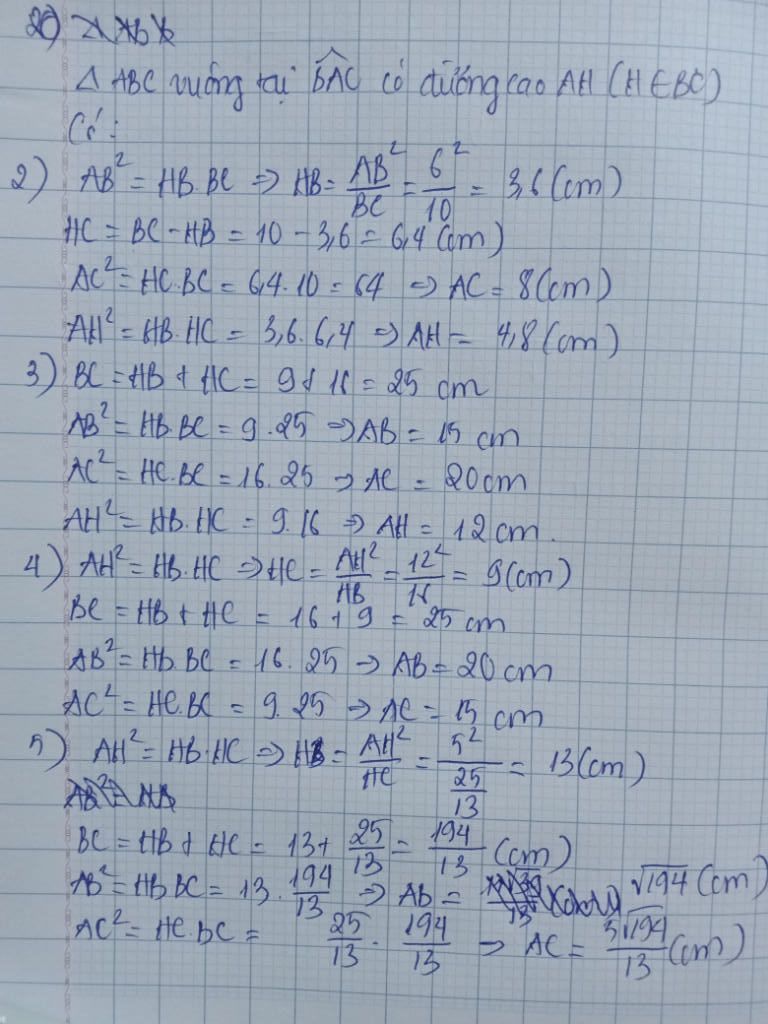 △ ABC vuông tại B̂AC có đường cao AH (H∈BC)
Có :
2) AB² = HB.BC ⇒ HB = AB²/BC = 6²/10 = 3,6 (cm)
HC = BC - HB = 10 - 3,6 = 6,4 (cm)
AC² = HC.BC = 6,4.10 = 64 ⇒ AC = 8 (cm)
AH² = HB.HC = 3,6.6,4 ⇒ AH = 4,8 (cm)
3) BC = HB + HC = 9 + 16 = 25 cm
AB² = HB.BC = 9.25 ⇒ AB = 15 cm
AC² = HC.BC = 16.25 ⇒ AC = 20 cm
AH² = HB.HC = 9.16 ⇒ AH = 12 cm.
4) AH² = HB.HC ⇒ HC = AH²/HB = 12²/16 = 9 (cm)
BC = HB + HC = 16 + 9 = 25 cm
AB² = HB.BC = 16.25 ⇒ AB = 20 cm
AC² = HC.BC = 9.25 ⇒ AC = 15 cm
5) AH² = HB.HC ⇒ HB = AH²/HC = 5²/(25/13) = 13 (cm)
BC = HB + HC = 13 + 25/13 = 194/13 (cm)
AB² = HB BC = 13.194/13 ⇒ AB = √194 (cm)
AC² = HC.BC = 25/13 . 194/13 ⇒ AC = 5√194/13 (cm)